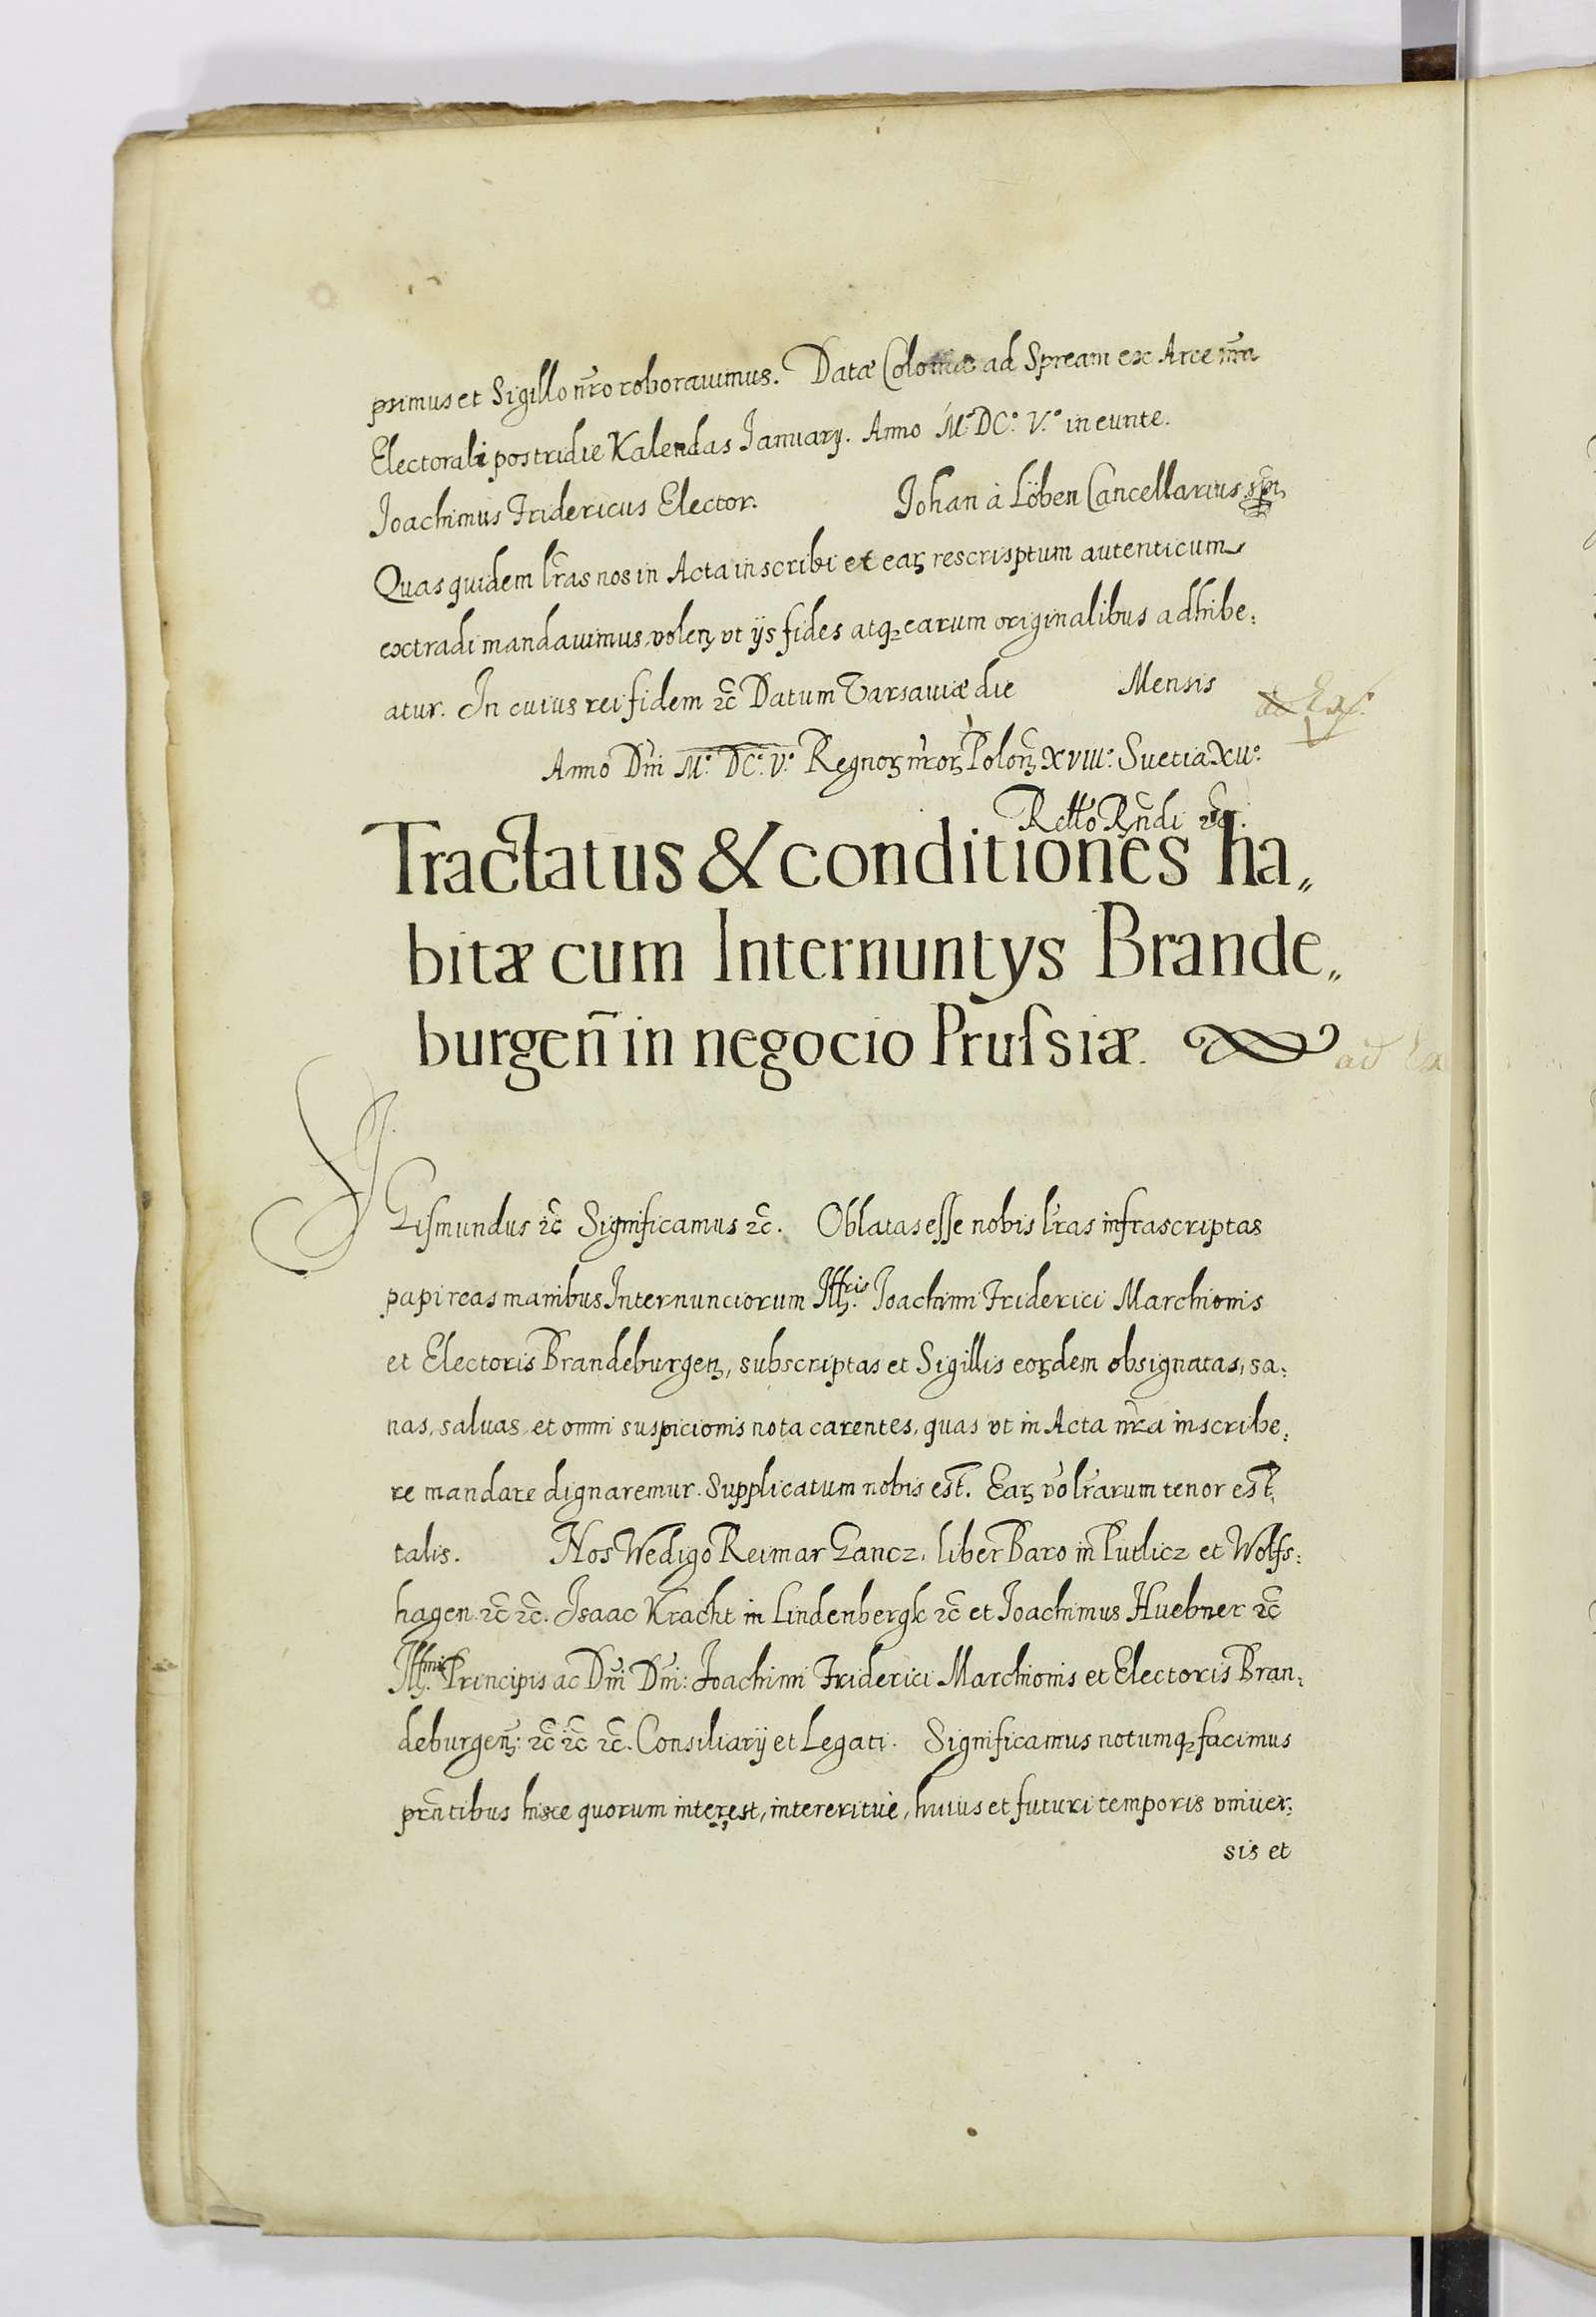 psimus et Sigillo nr̃o roborauimus. Datæ Coloniæ ad Spream ex Arce nr̃a
Electorali postridie Kalendas Ianuarij. Anno M.° DC.° V.° in eunte.
Ioachimus Fridericus Elector. Johan à Löben Cancellarius
Quas quidem lr̃as nos in Acta inscribi et eaꝝ rescrisptum autenticum
extradi mandauimus, volenꝫ vt ijs fides atqꝫ earum originalibus adhibe:
atur. In cuius rei fidem ꝛc̃ Datum Varsauiæ die Mensis
Anno Dñi M.° DC.° V.° Regnoꝝ nr̃oꝝ Poloñꝫ XVIII.° Suetiæ XII.°
Tractatus & conditiones ha„
bitæ cum Internuntys Brande„
burgeñ in negocio Prusſiæ.
Sigiſmundus ꝛc̃ Significamus ꝛc̃. Oblatas eſſe nobis lr̃as infrascriptas
papireas manibus Internunciorum Illꝫ.ris Ioachimi Friderici Marchionis
et Electoris Brandeburgenꝫ, subscriptas et Sigillis eoꝝdem obsignatas, sa:
nas, saluas, et omni suspicionis nota carentes, quas vt in Acta nr̃a inscribe:
re mandare dignaremur. Supplicatum nobis est. Eaꝝ vo lr̃arum tenor est
talis. Nos Wedigo Reimar Gancz, liber Baro in Putlicz et Wolfs:
hagen ꝛc̃ ꝛc̃. Isaac Kracht in Lindenbergk ꝛc̃ et Ioachimus Huebner ꝛc̃
Illꝫ.mi Principis ac Dñi Dñi: Ioachimi Friderici Marchionis et Electoris Bran:
deburgenꝫ: ꝛc̃ ꝛc̃ ꝛc̃. Consiliarij et Legati. Significamus notumqꝫ facimus
prñtibus hisce quorum interest, intereritue, huius et futuri temporis vniuer:
sis et